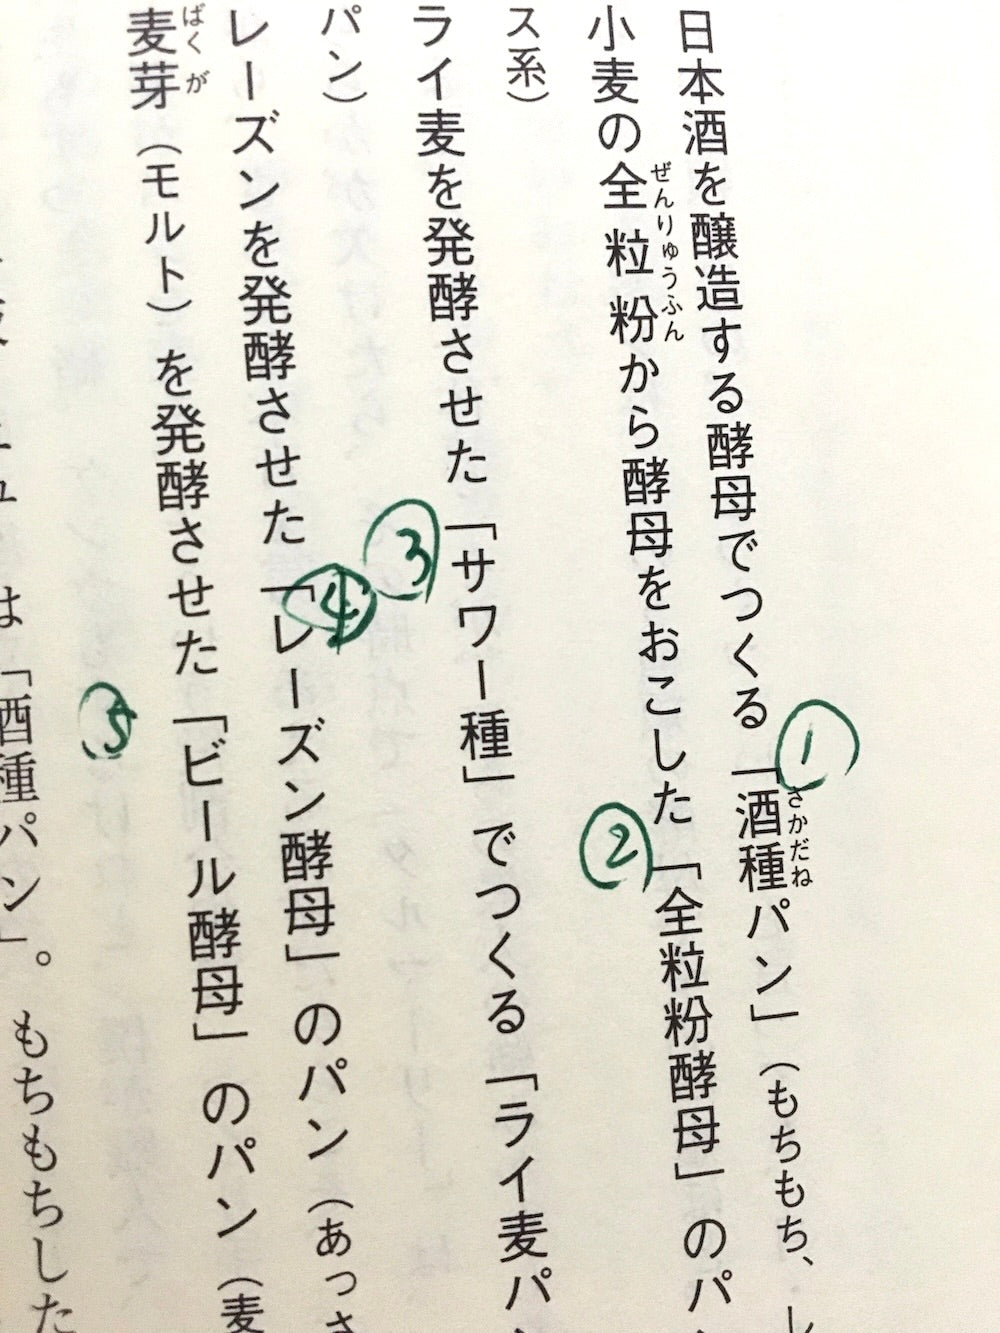 日本酒を醸造する酵母でつくる「酒種パン」（もちもち、し
さかだね
①
小麦の全粒粉から酵母をおこした「全粒粉酵母」のパ
ぜんりゅうふん
②
ス系）
ライ麦を発酵させた「サワー種」でつくる「ライ麦パ
③
パン）
レーズンを発酵させた「レーズン酵母」のパン（あっさ
④
麦芽（モルト）を発酵させた「ビール酵母」のパン（麦
ばくが
⑤
は「酒種パン」。もちもちした